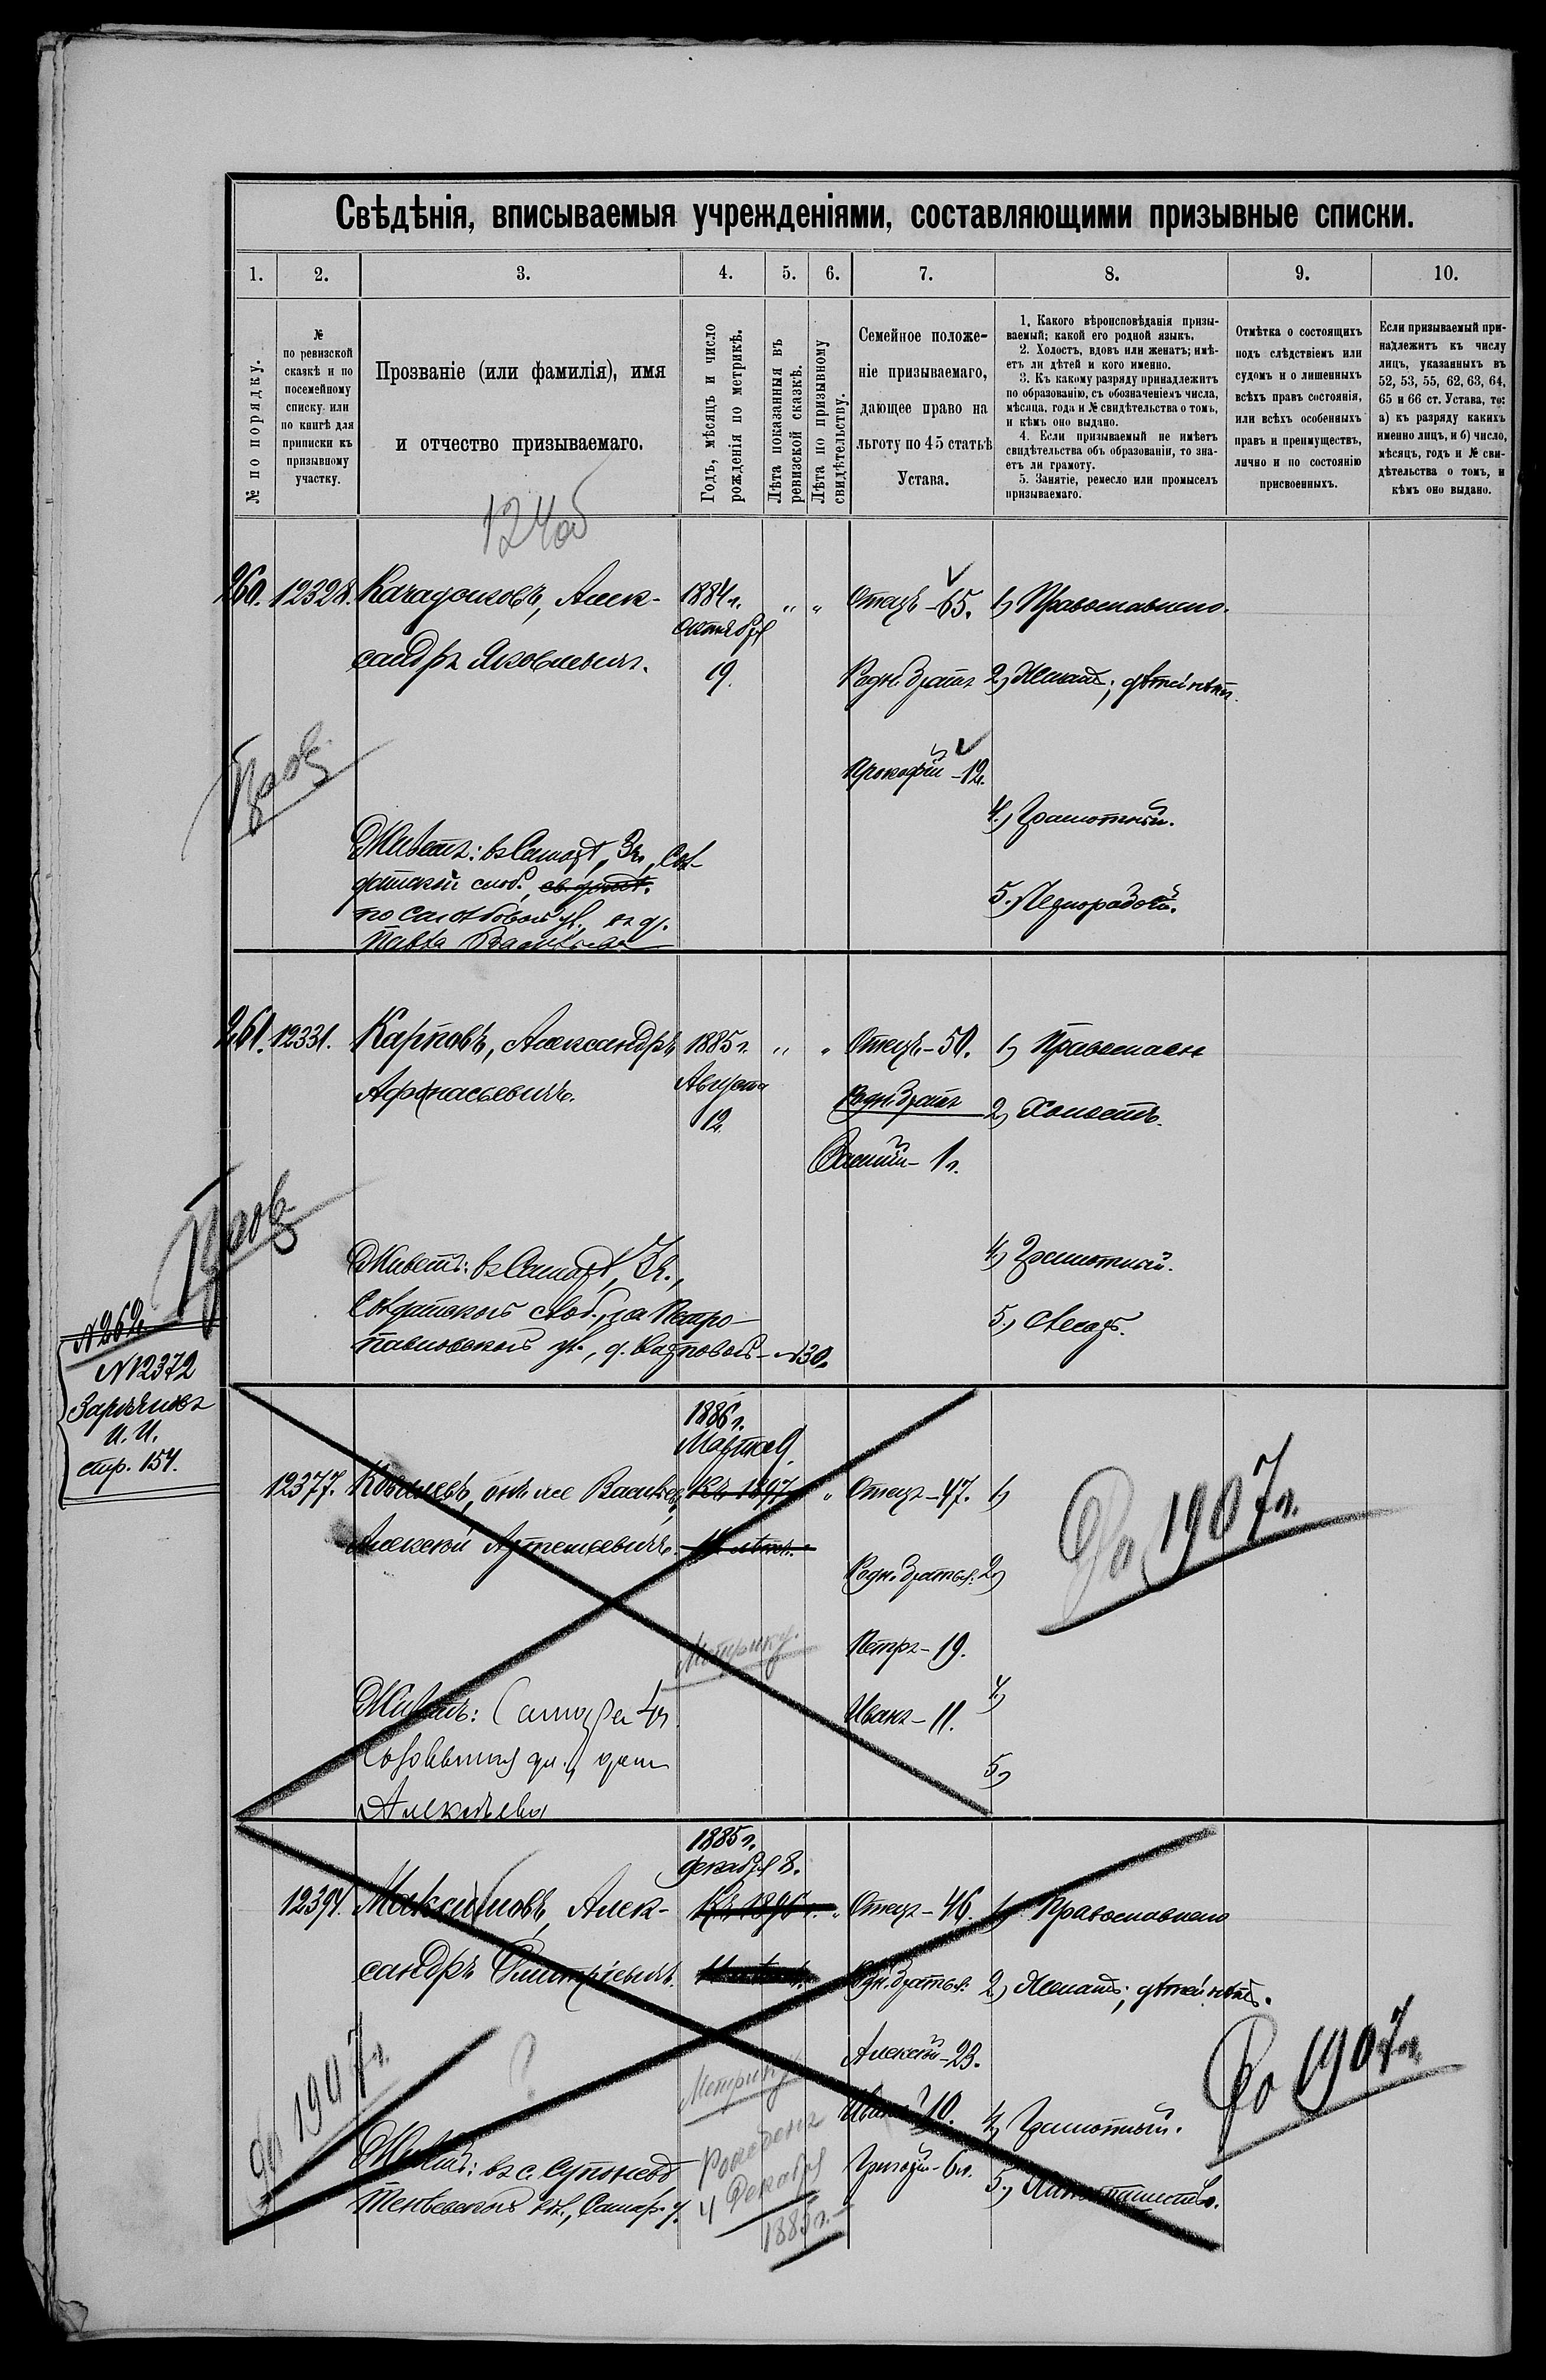 Свѣдѣнія, вписываемыя учрежденіями, составляющими призывные списки.
1. 2. 3. 4. 5. 6. 7. 8. 9. 10.
№ по порядку.
№
по ревизской
сказкѣ и по
посемейному
списку или
по книгѣ для
приписки къ
призывному
участку.
Прозваніе (или фамилія), имя
и отчество призываемаго.
Годъ, мѣсяцъ и число
рожденія по метрикѣ.
Лѣта показанныя въ
ревизской сказкѣ.
Лѣта по призывному
свидѣтельству.
Семейное положе-
ніе призываемаго,
дающее право на
льготу по 45 статьѣ
Устава.
1. Какого вѣроисповѣданія призы-
ваемый; какой его родной языкъ.
2. Холостъ, вдовъ или женатъ; имѣ-
етъ ли дѣтей и кого именно.
3. Къ какому разряду принадлежитъ
по образованію, съ обозначеніемъ числа,
мѣсяца, года и № свидѣтельства о томъ,
и кѣмъ оно выдано.
4. Если призываемый не имѣетъ
свидѣтельства объ образованіи, то зна-
етъ ли грамоту.
5. Занятіе, ремесло или промыселъ
призываемаго.
Отмѣтка о состоящихъ
подъ слѣдствіемъ или
судомъ и о лишенныхъ
всѣхъ правъ состоянія,
или всѣхъ особенныхъ
правъ и преимуществъ,
лично и по состоянію
присвоенныхъ.
Если призываемый при-
надлежитъ къ числу
лицъ, указанныхъ въ
52, 53, 55, 62, 63, 64,
65 и 66 ст. Устава, то:
а) къ разряду какихъ
именно лицъ, и б) число,
мѣсяцъ, годъ и № сви-
дѣтельства о томъ, и
кѣмъ оно выдано.
124об
260. 12328. Алек-
сандръ Яковлевичъ.
1884 г.
Октября
19.
" "
Отецъ - 65.
Родн. братъ
Прокофій - 12.
1) Православнаго.
2) Женатъ; дѣтей нѣтъ.
4.) Грамотный.
5.) Чернорабочій.
Живетъ: въ Самарѣ, 3 ч., Сол-
датской слоб.,
261. 12331. Карповъ, Александръ
Афанасьевичъ.
1885 г.
Августа
12.
" "
Отецъ - 50.
Родн. братъ
Василій - 1 г.
1) Православн
2) Холостъ.
4) Грамотный.
5.) Слесарь.
Живетъ: въ Самарѣ, 3 ч.,
Солдатской слоб., на Петро-
павловской ул., д. Карповой - №30.
№262.
№12372
И. И.
стр. 154.
1886 г.
Марта 9
12377. Ковалевъ, онъ же
Алексѣй Артемьевичъ.
Къ 1897
11 лѣтъ.
Отецъ - 47.
Родн. братья:
Петръ - 19.
Иванъ - 11.
1)
2)
4)
5)
До 1907 г.
Метрику.
Живетъ: Самара 4 ч
1885 г.
декабря 8.
12394. Максимовъ, Алек-
сандръ Дмитріевичъ.
Къ 1896 г. "
Отецъ - 46.
Родн. братья:
Алексѣй - 23.
Иванъ 10.
Григорій - 6 л.
1) Православнаго
2) Женатъ; дѣтей нѣтъ.
4) Грамотный.
5.) Хлѣбопашество.
До 1907 г.
До 1907 г.
?
Метрику
Рожденъ
4 Декабря
1885 г.
Живетъ: въ с. Супоневѣ